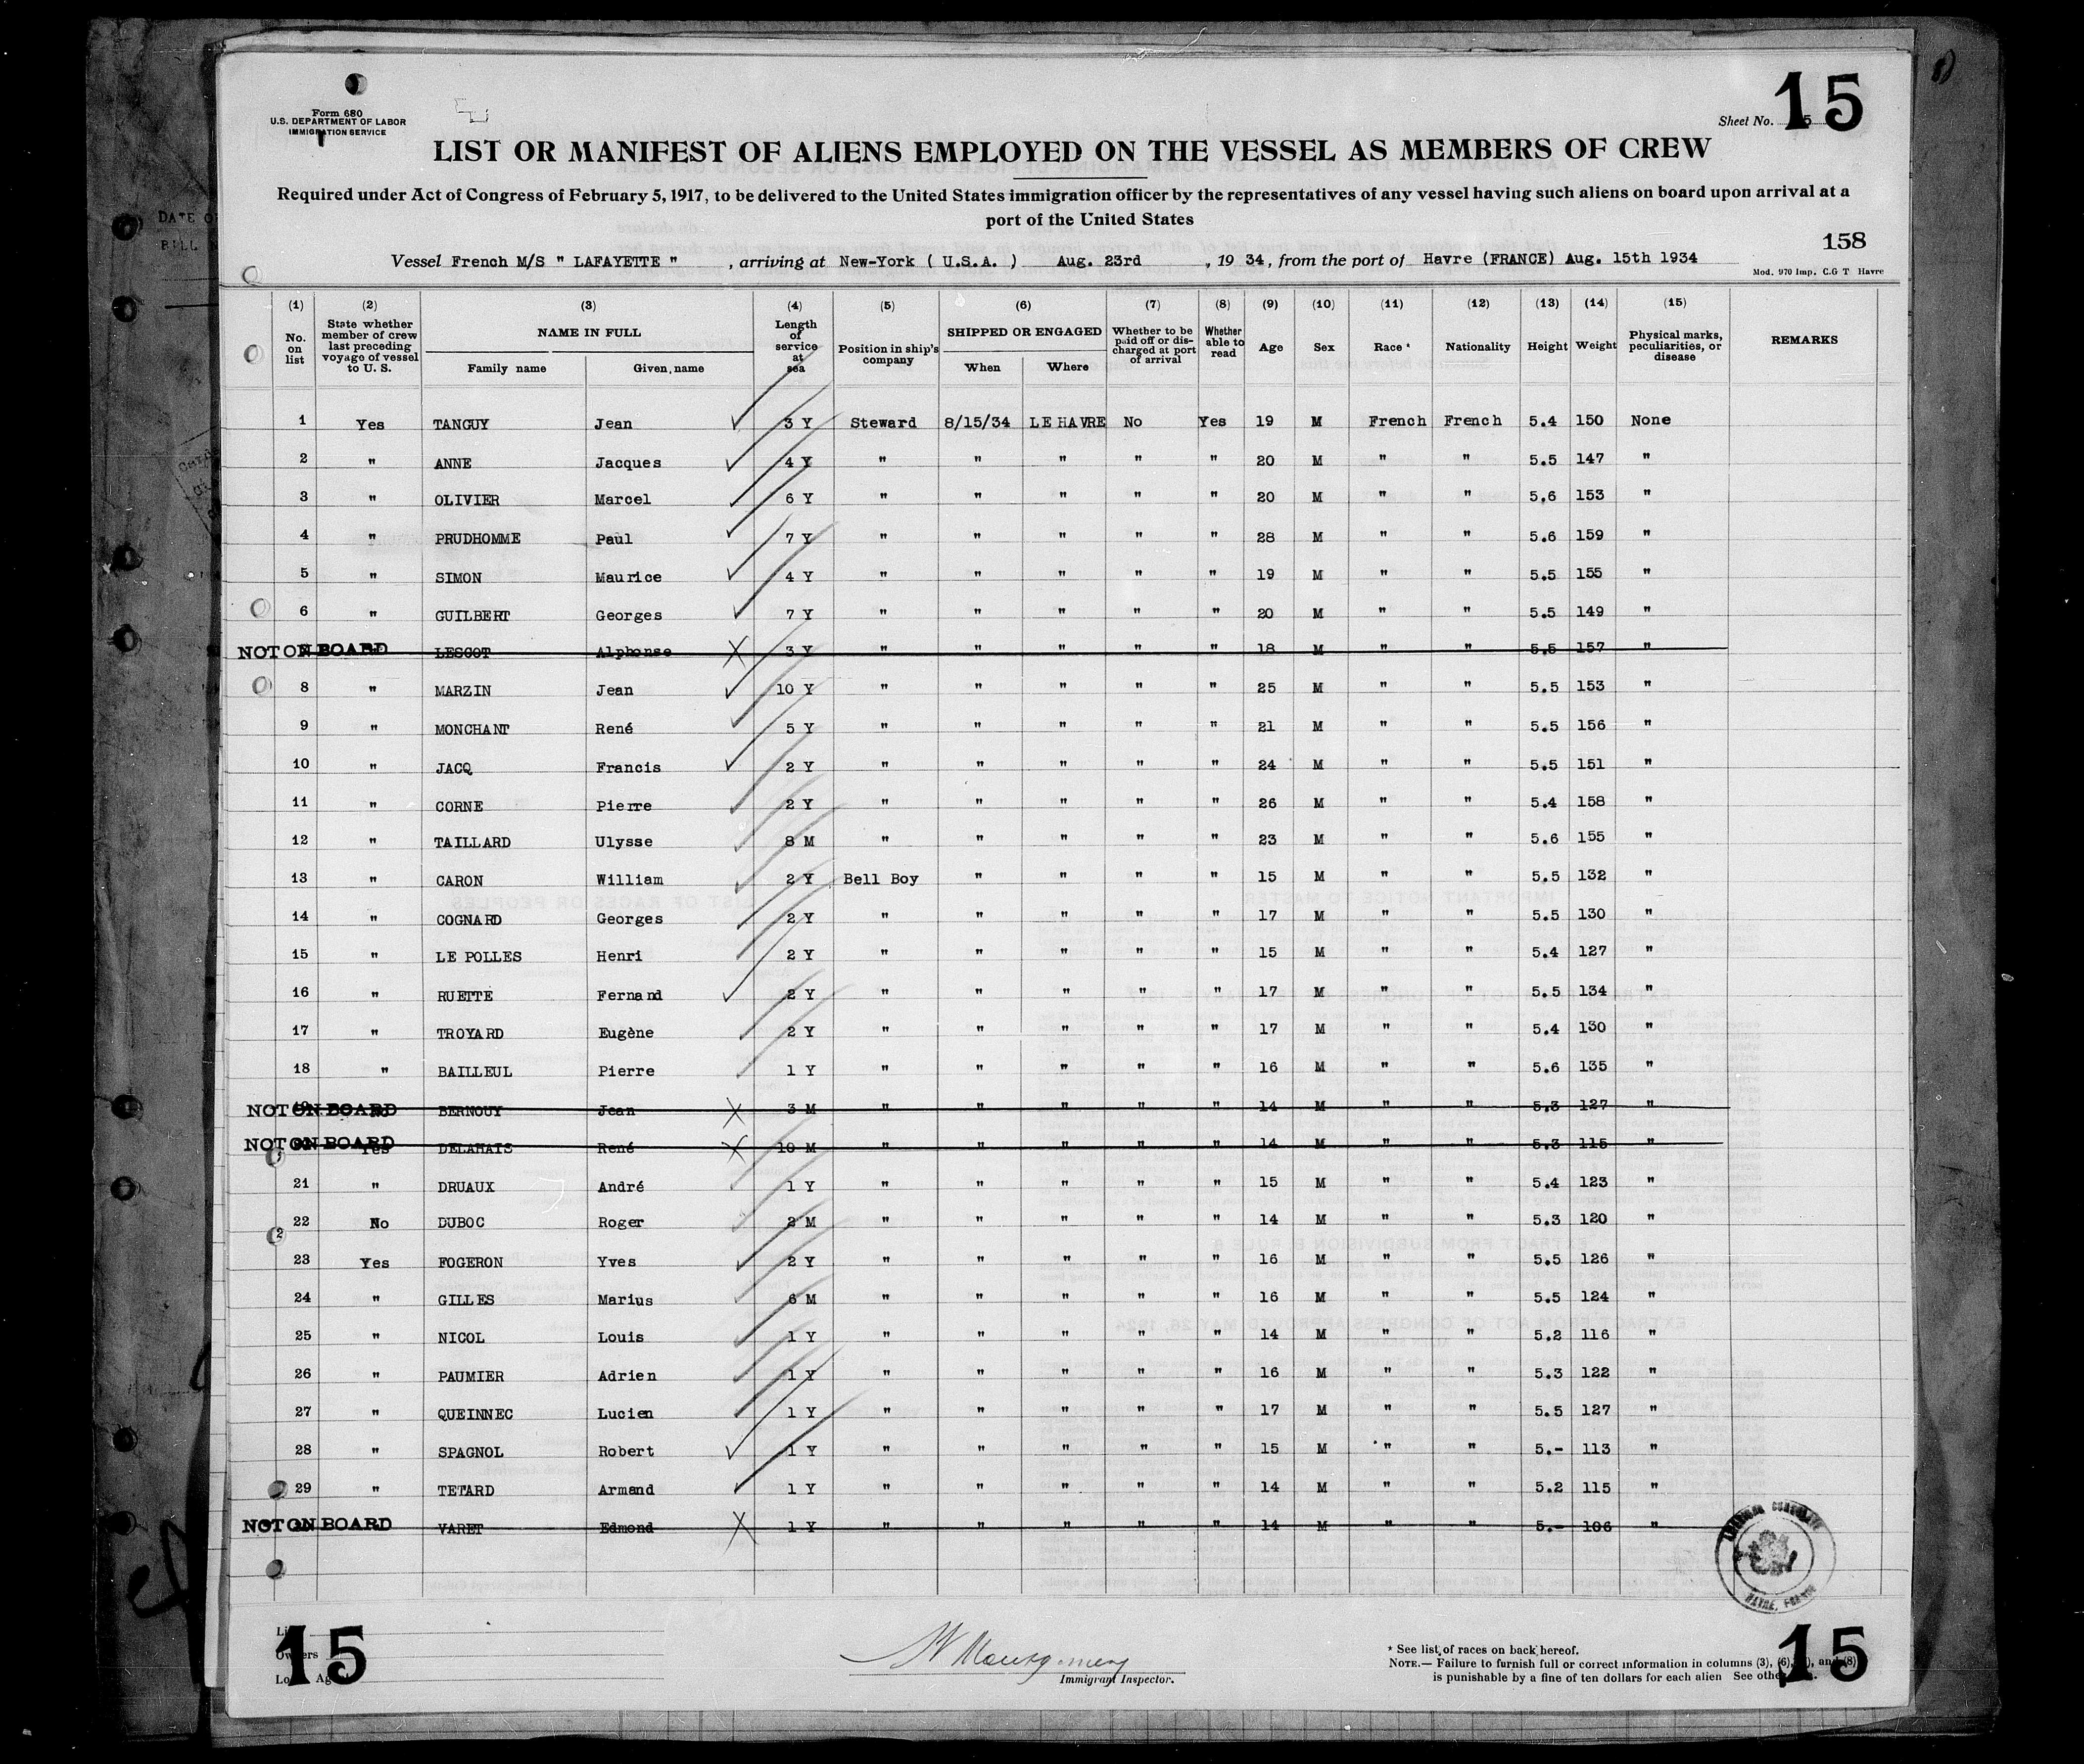 15
Form 680
U.S. DEPARTMENT OF LABOR
IMMIGRATION SERVICE
Sheet No.
LIST OR MANIFEST OF ALIENS EMPLOYED ON THE VESSEL AS MEMBERS OF CREW
Required under Act of Congress of February 5, 1917, to be delivered to the United States immigration officer by the representatives of any vessel having such aliens on board upon arrival at a
port of the United States
158
Vessel French M/S " LAFAYETTE " , arriving at New-York ( U.S.A. ) Aug. 23rd , 19 34, from the port of Havre (FRANCE) Aug. 15th 1934
Mod. 970 Imp. C.G T Havre
(1) (2) (3) (4) (5) (6) (7) (8) (9) (10) (11) (12) (13) (14) (15)
No. on list State whether member of crew last preceding voyage of vessel to U. S. NAME IN FULL Family name Given name Length of service at sea Position in ship's company SHIPPED OR ENGAGED When Where Whether to be paid off or discharged at port of arrival Whether able to read Age Sex Race * Nationality Height Weight Physical marks, peculiarities, or disease REMARKS
1 Yes TANGUY Jean 3 Y Steward 8/15/34 LE HAVRE No Yes 19 M French French 5.4 150 None
2 " ANNE Jacques 4 Y " " " " " 20 M " " 5.5 147 "
3 " OLIVIER Marcel 6 Y " " " " " 20 M " " 5.6 153 "
4 " PRUDHOMME Paul 7 Y " " " " " 28 M " " 5.6 159 "
5 " SIMON Maurice 4 Y " " " " " 19 M " " 5.5 155 "
6 " GUILBERT Georges 7 Y " " " " " 20 M " " 5.5 149 "
NOT ON BOARD LESCOT Alphonse 3 Y " " " " " 18 M " " 5.5 157 "
8 " MARZIN Jean 10 Y " " " " " 25 M " " 5.5 153 "
9 " MONCHANT René 5 Y " " " " " 21 M " " 5.5 156 "
10 " JACQ Francis 2 Y " " " " " 24 M " " 5.5 151 "
11 " CORNE Pierre 2 Y " " " " " 26 M " " 5.4 158 "
12 " TAILLARD Ulysse 8 M " " " " " 23 M " " 5.6 155 "
13 " CARON William 2 Y Bell Boy " " " " 15 M " " 5.5 132 "
14 " COGNARD Georges 2 Y " " " " " 17 M " " 5.5 130 "
15 " LE POLLES Henri 2 Y " " " " " 15 M " " 5.4 127 "
16 " RUETTE Fernand 2 Y " " " " " 17 M " " 5.5 134 "
17 " TROYARD Eugène 2 Y " " " " " 17 M " " 5.4 130 "
18 " BAILLEUL Pierre 1 Y " " " " " 16 M " " 5.6 135 "
NOT ON BOARD No BERNOUY Jean 3 M " " " " " 14 M " " 5.3 127 "
NOT ON BOARD Yes DELAHAIS René 10 M " " " " " 14 M " " 5.3 115 "
21 " DRUAUX André 1 Y " " " " " 15 M " " 5.4 123 "
22 No DUBOC Roger 2 M " " " " " 14 M " " 5.3 120 "
23 Yes FOGERON Yves 2 Y " " " " " 16 M " " 5.5 126 "
24 " GILLES Marius 6 M " " " " " 16 M " " 5.5 124 "
25 " NICOL Louis 1 Y " " " " " 14 M " " 5.2 116 "
26 " PAUMIER Adrien 1 Y " " " " " 16 M " " 5.3 122 "
27 " QUEINNEC Lucien 1 Y " " " " " 17 M " " 5.5 127 "
28 " SPAGNOL Robert 1 Y " " " " " 15 M " " 5.- 113 "
29 " TETARD Armand 1 Y " " " " " 14 M " " 5.2 115 "
NOT ON BOARD VARET Edmond 1 Y " " " " " 14 M " " 5.- 106 "
AMERICAN CONSULATE
HAVRE, FRANCE
15
W Montgomery
Immigrant Inspector.
* See list of races on back hereof.
NOTE.— Failure to furnish full or correct information in columns (3), (6), and (8)
is punishable by a fine of ten dollars for each alien See
15